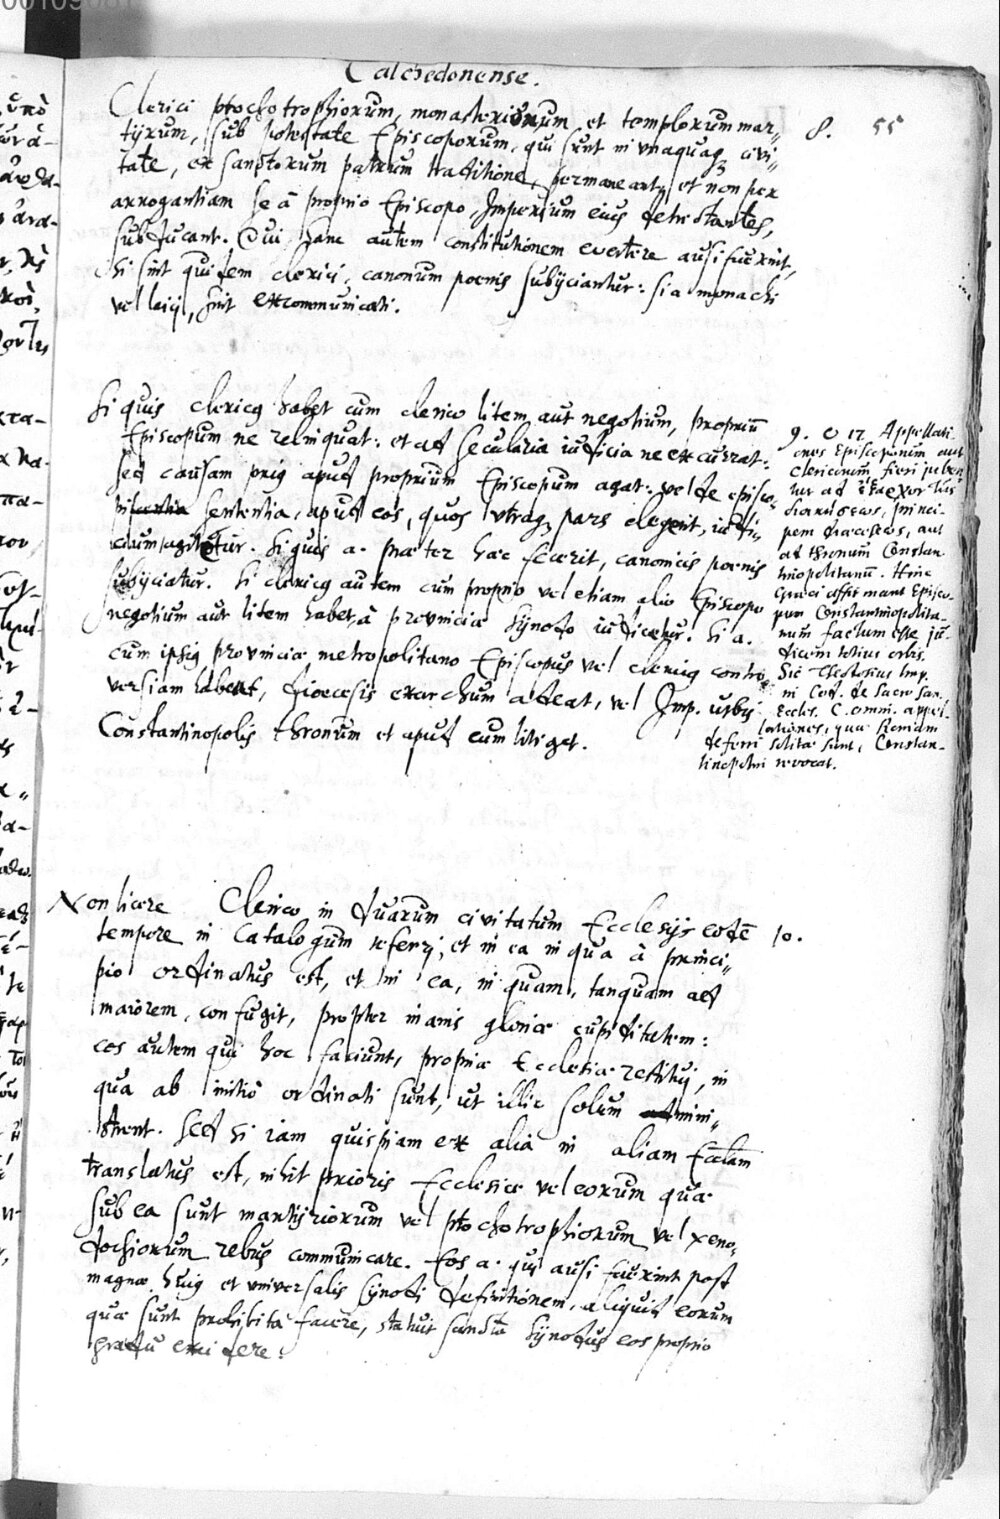 Calchedonense.
8. 55
Clerici ptochotrophiorum, monasteriorum et templorum mar„
tyrum, sub potestate Episcoporum, qui sunt in unaquaq, civi„
tate, ex sanctorum patrum traditione, permaneant, et non per
arrogantiam se à proprio Episcopo, Imperium eius detrectantes,
subducant. Qui hanc autem constitutionem evertere ausi fuerint,
si sint quidem clerici, canonum poenis subijciantur: si a monachi
vel laici, sint excommunicati.
Si quis clericq habet cum clerico litem aut negotium, propriũ
Episcopum ne relinquat: et ad secularia iudicia ne excurrat:
sed causam priq apud proprium Episcopum agat: vel de episco„
pi sententia, apud eos, quos utraq, pars elegerit, iudi„
cium agitetur. Si quis a. praeter haec fecerit, canonicis poenis
subijciatur. Si clericq autem cum proprio vel etiam alio Episcopo
negotium aut litem habet, à provinciae synodo iudicetur. Si a.
cum ipsiq provinciae metropolitano Episcopus vel clericq contro„
versiam habent, dioecesis exarchum adeat, vel Imp. urbis
Constantinopolis thronum et apud eum litiget.
9. et 17. Appellati„
ones Episcoporum aut
clericorum fieri juben„
tur ad Exor tus
dioeceseos, princi„
pem dioeceseos, aut
ad thronum Constan„
tinopolitanũ. Hinc
Graeci affirmant Episco„
pum Constantinopolita„
num factum esse ju„
dicem totius orbis.
Sic Theodosius Imp.
in Cod. de Sacro San.
Eccles. C. omni. appel„
lationes, quae Romam
deferri solitae sunt, Constan„
tinopolim revocat.
Non licere Clerico in duarum civitatum Ecclesijs eodẽ 10.
tempore in Catalogum referri; et in ea in qua à princi„
pio ordinatus est, et in ea, in quam, tanquam ad
maiorem, confugit, propter inanis gloriae cupiditatem:
eos autem qui hoc faciunt, propriae Ecclesiae restitui, in
qua ab initio ordinati sunt, ut illic solum mini„
strent. Sed si iam quispiam ex aliâ in aliam Ecclam
translatus est, nihil prioris Ecclesiae vel eorum quae
sub ea sunt martyriorum vel ptochotrophiorum vel xeno„
dochiorum rebus communicare. Eos a. qui ausi fuerint post
magnae huiq et universalis Synodi definitionem, aliquid eorum
quae sunt prohibita facere, statuit sancta Synodus eos proprio
gradu excidere.